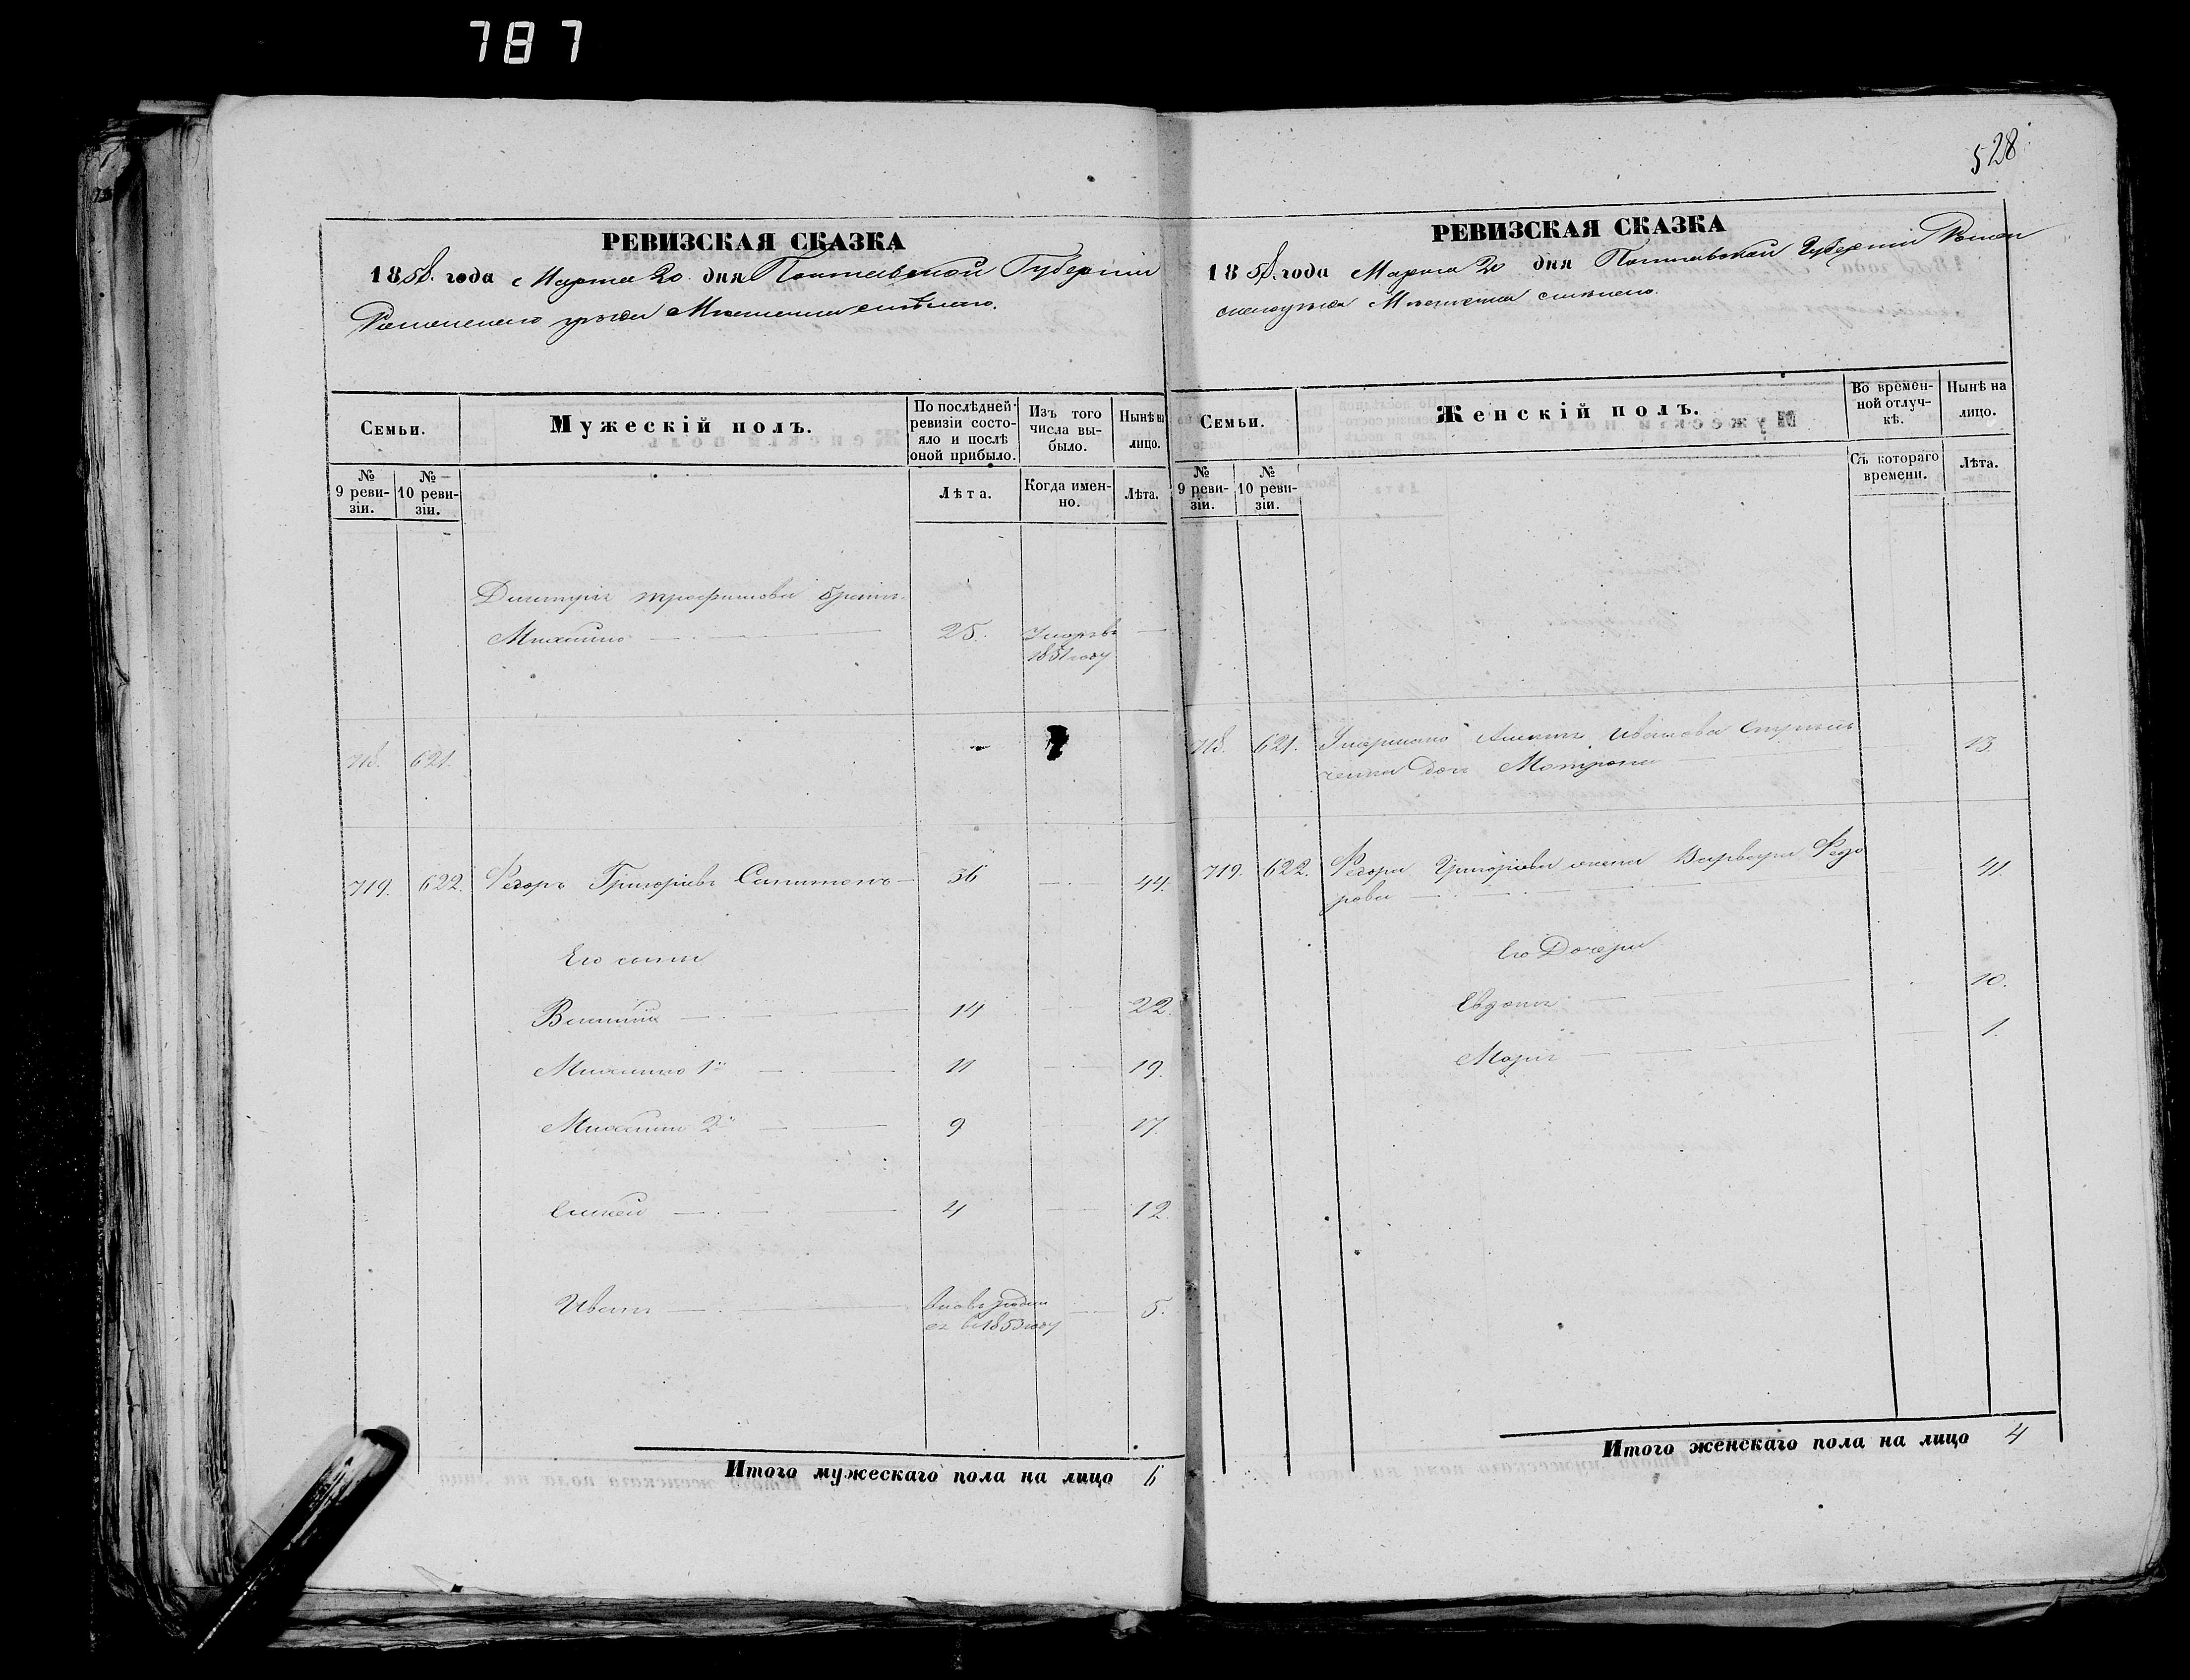 787
528
РЕВИЗСКАЯ СКАЗКА
1858. года Марта 20. дня Полтавской Губерніи
Роменского уезда Местечка
Семьи.
Мужескій полъ.
По послѣдней ревизіи состояло и послѣ оной прибыло.
Изъ того числа выбыло.
Нынѣ на лицо.
№ 9 ревизіи.
№ 10 ревизіи.
Лѣта.
Когда именно.
Лѣта.
Дмитрія Трофимова братъ
Михайло 25. Умеръ въ
1851 году
718. 621.
719. 622. Федоръ Григоріевъ 36 44.
Его сыны
Василій 14 22.
Михайло 1й 11 19.
Михайло 2й 9 17.
4 12.
Иванъ 5.
въ 1853 году
Итого мужескаго пола на лицо 6
РЕВИЗСКАЯ СКАЗКА
1858. года Марта 20 дня Полтавской Губерніи Ромен
ского уезда Местечка
Семьи.
Женскій полъ.
Во временной отлучкѣ.
Нынѣ на лицо.
№ 9 ревизіи.
№ 10 ревизіи.
Съ котораго времени.
Лѣта.
718. 621. Умершаго Иванова 13
дочь Мотрона
719. 622. Федора Григоріева жена Варвара Федо 41.
рова
Его Дочери
10.
Марія 1.
Итого женскаго пола на лицо 4